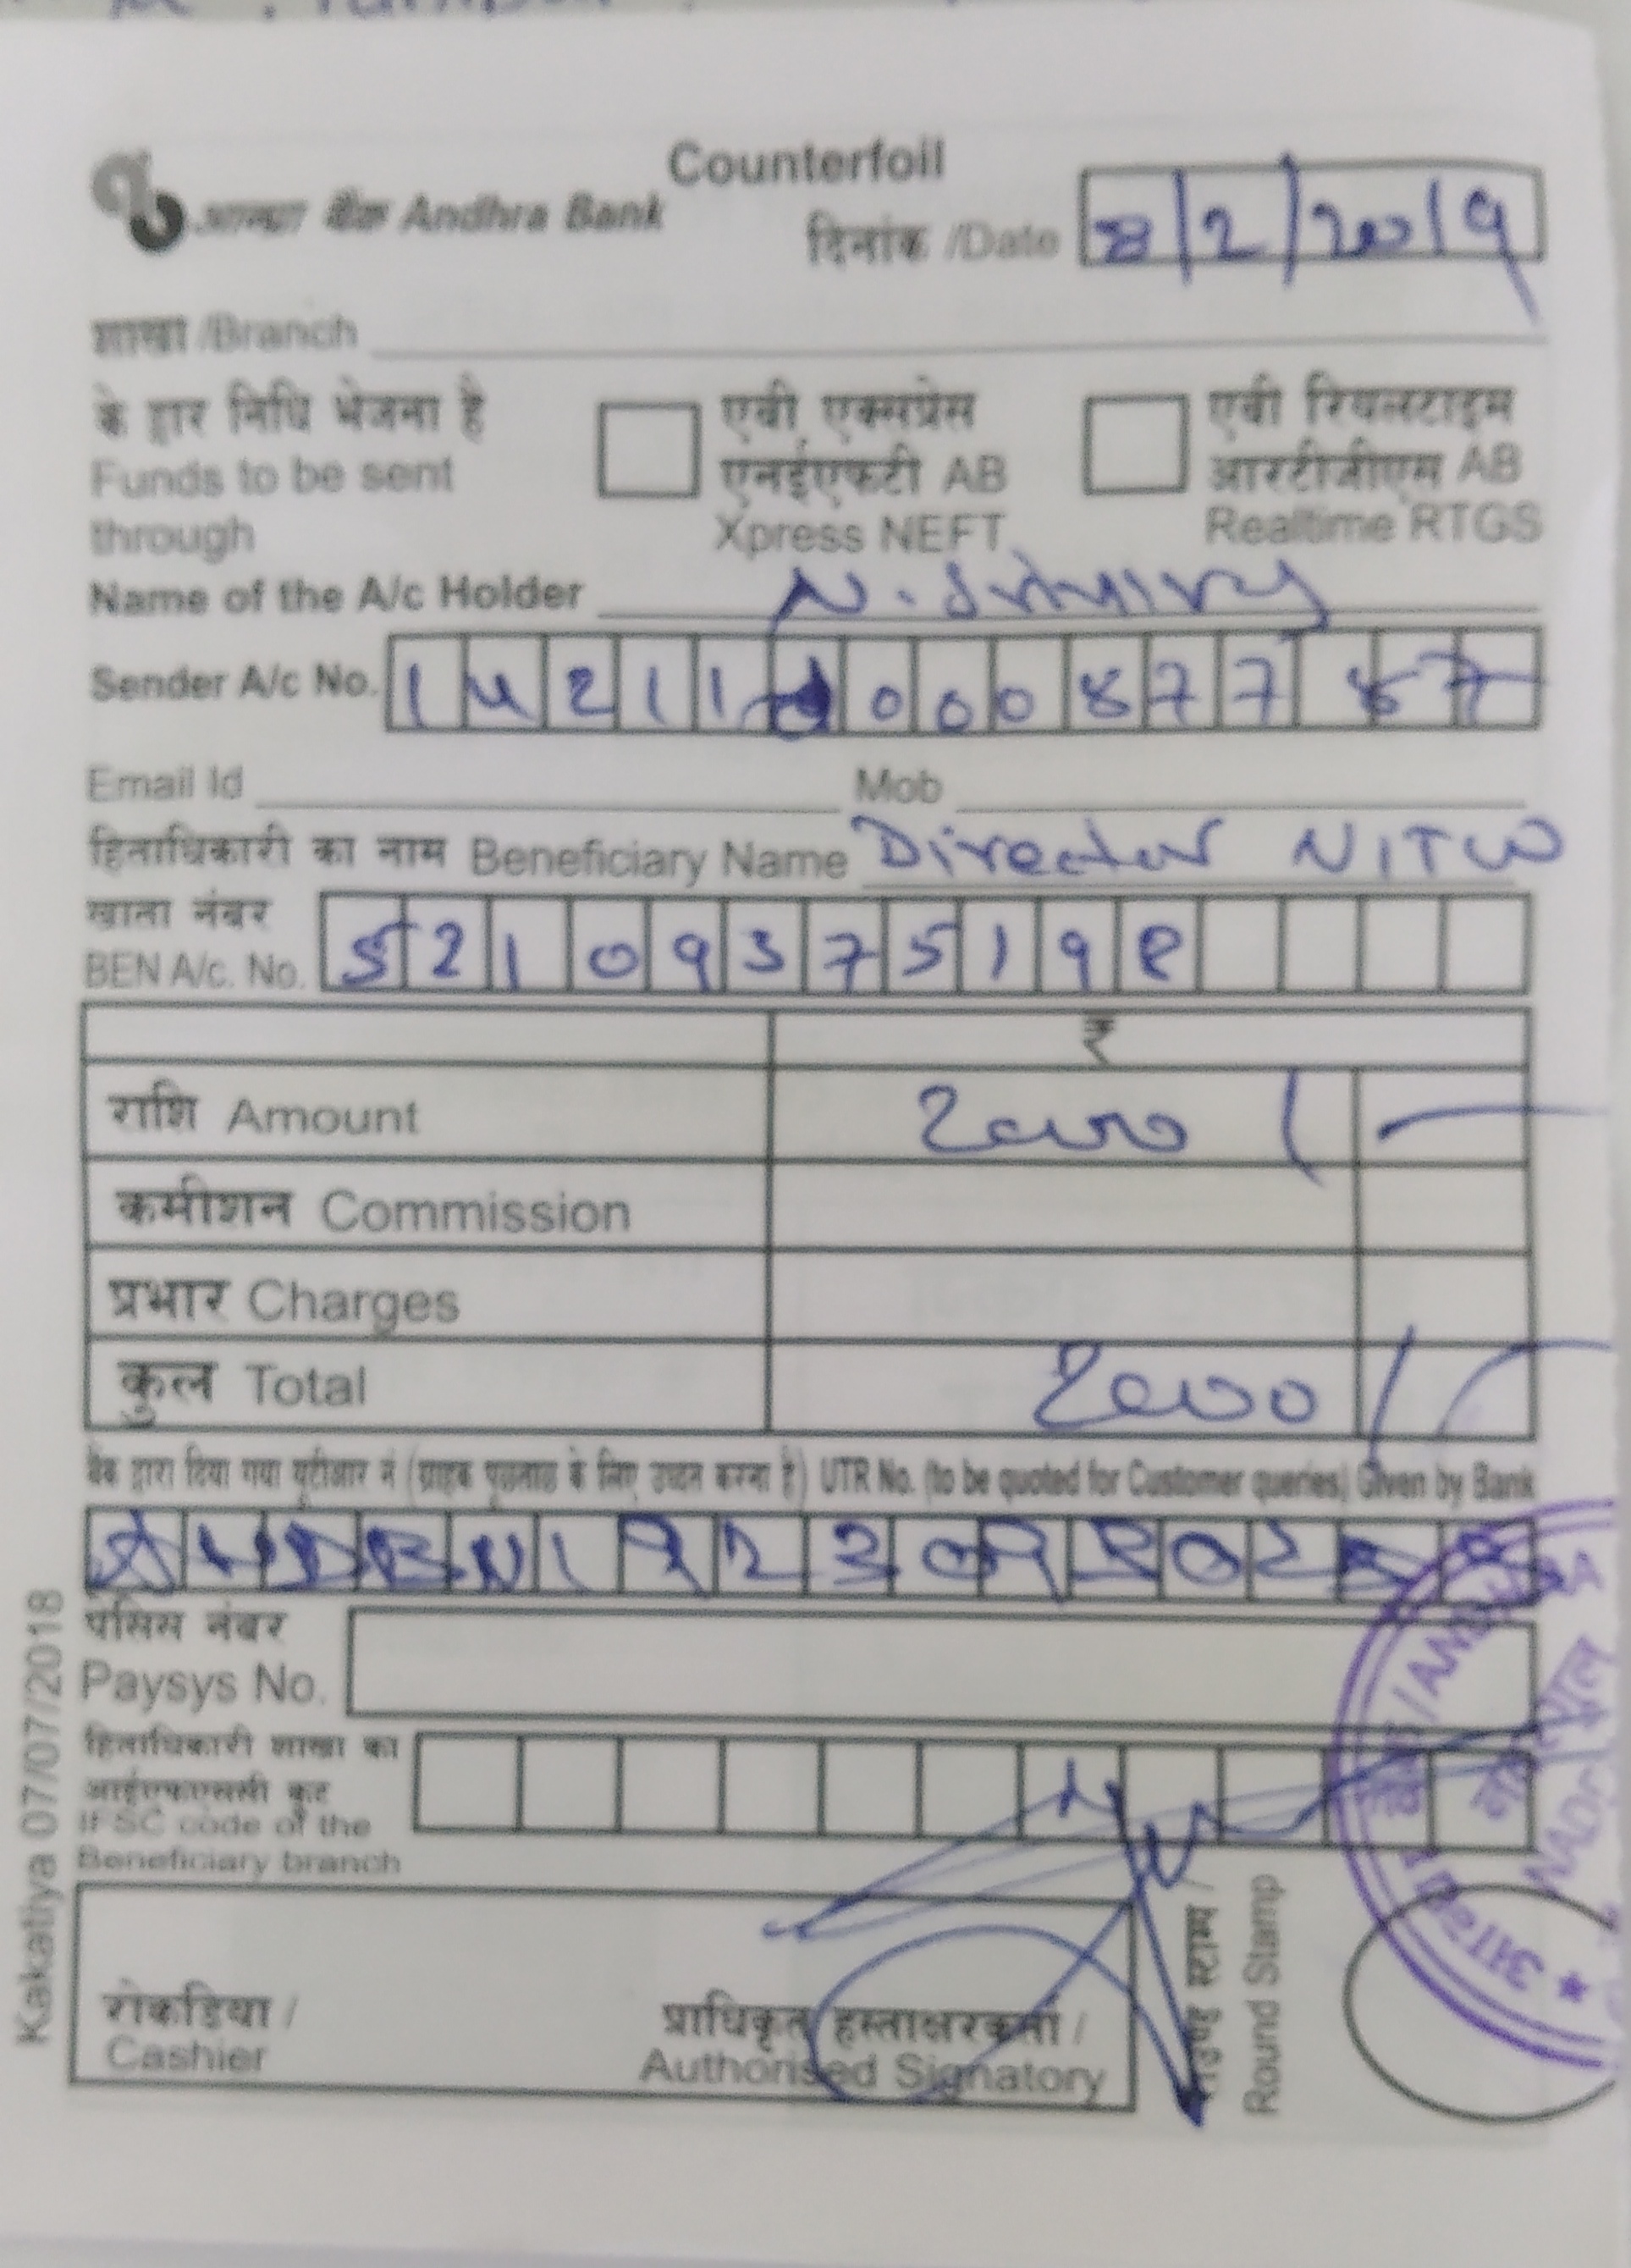 Counterfoil
आन्ध्रा बैंक Andhra Bank
दिनांक /Date 8/2/2019
शाखा /Branch
के द्वार निधि भेजना है
Funds to be sent
through
एबी एक्सप्रेस
एनईएफटी AB
Xpress NEFT
एबी रियलटाइम
आरटीजीएस AB
Realtime RTGS
Name of the A/c Holder N.
Sender A/c No. 1 4 2 1 1 0 0 0 8 7 7
Email Id Mob
हिताधिकारी का नाम Beneficiary Name Director NITW
खाता नंबर
BEN A/c. No. 5 2 1 0 9 3 7 5 1 9 8
₹
राशि Amount 2000/-
कमीशन Commission
प्रभार Charges
कुल Total 2000/-
बैंक द्वारा दिया गया यूटीआर नं (ग्राहक पूछताछ के लिए उद्धत करना है) UTR No. (to be quoted for Customer queries) Given by Bank
पेसिस नंबर
Paysys No.
हिताधिकारी शाखा का
आईएफएससी कूट
IFSC code of the
Beneficiary branch
रोकडिया /
Cashier
प्राधिकृत हस्ताक्षरकर्ता /
Authorised Signatory
राउण्ड स्टाम्प /
Round Stamp
Kakatiya 07/07/2018